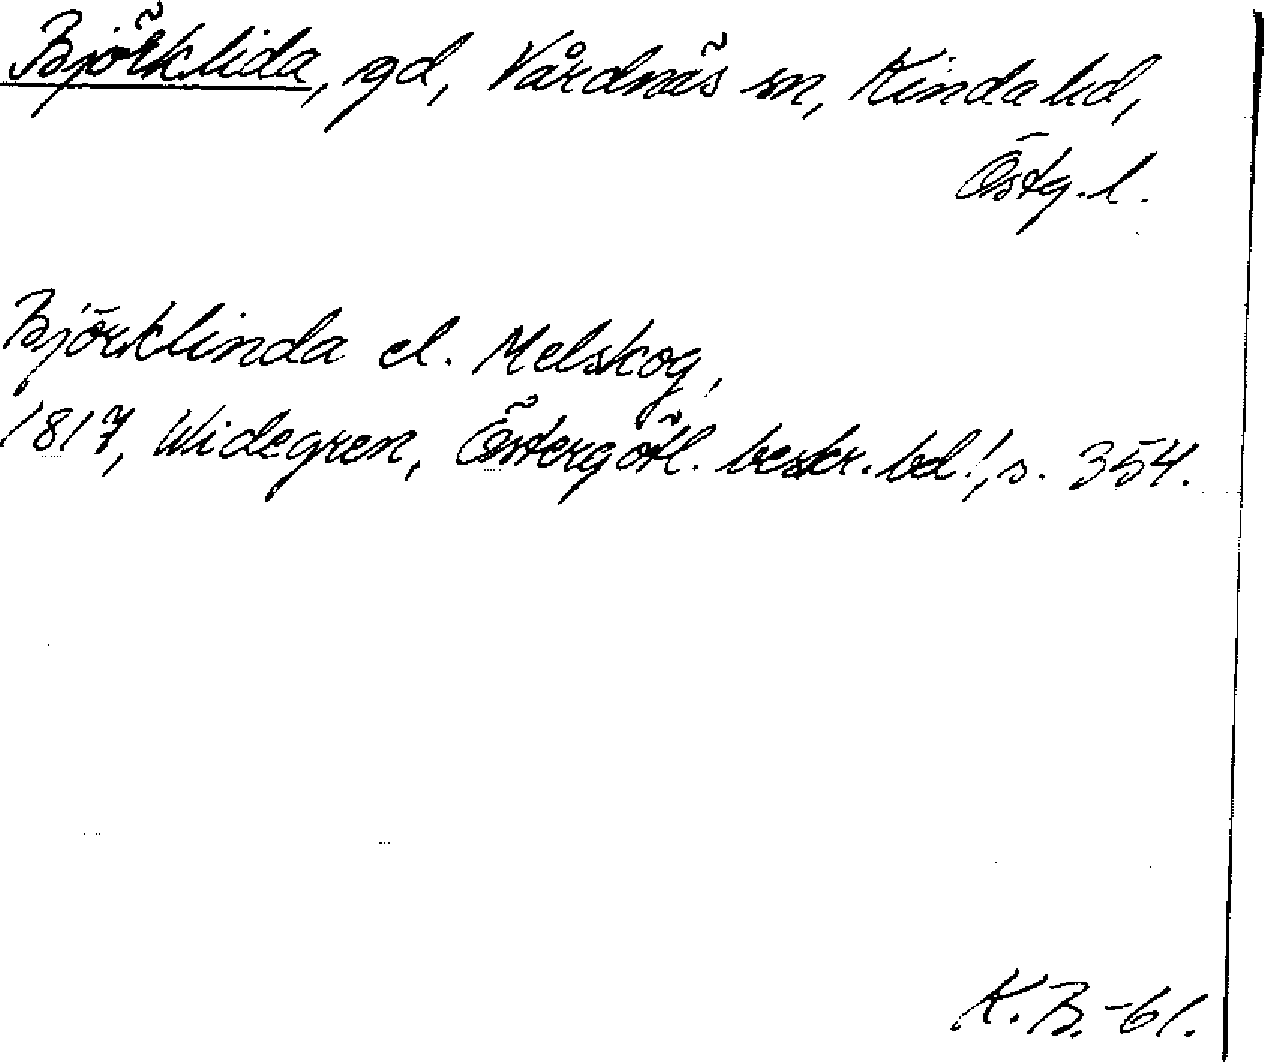 Björklida, gd, Vårdnäs sn, Kinda hd,
Östg. l.
Björklinda el. Melskog,
1817, Widegren, Östergötl. beskr. bd 1, s. 354.
K.B.-61.